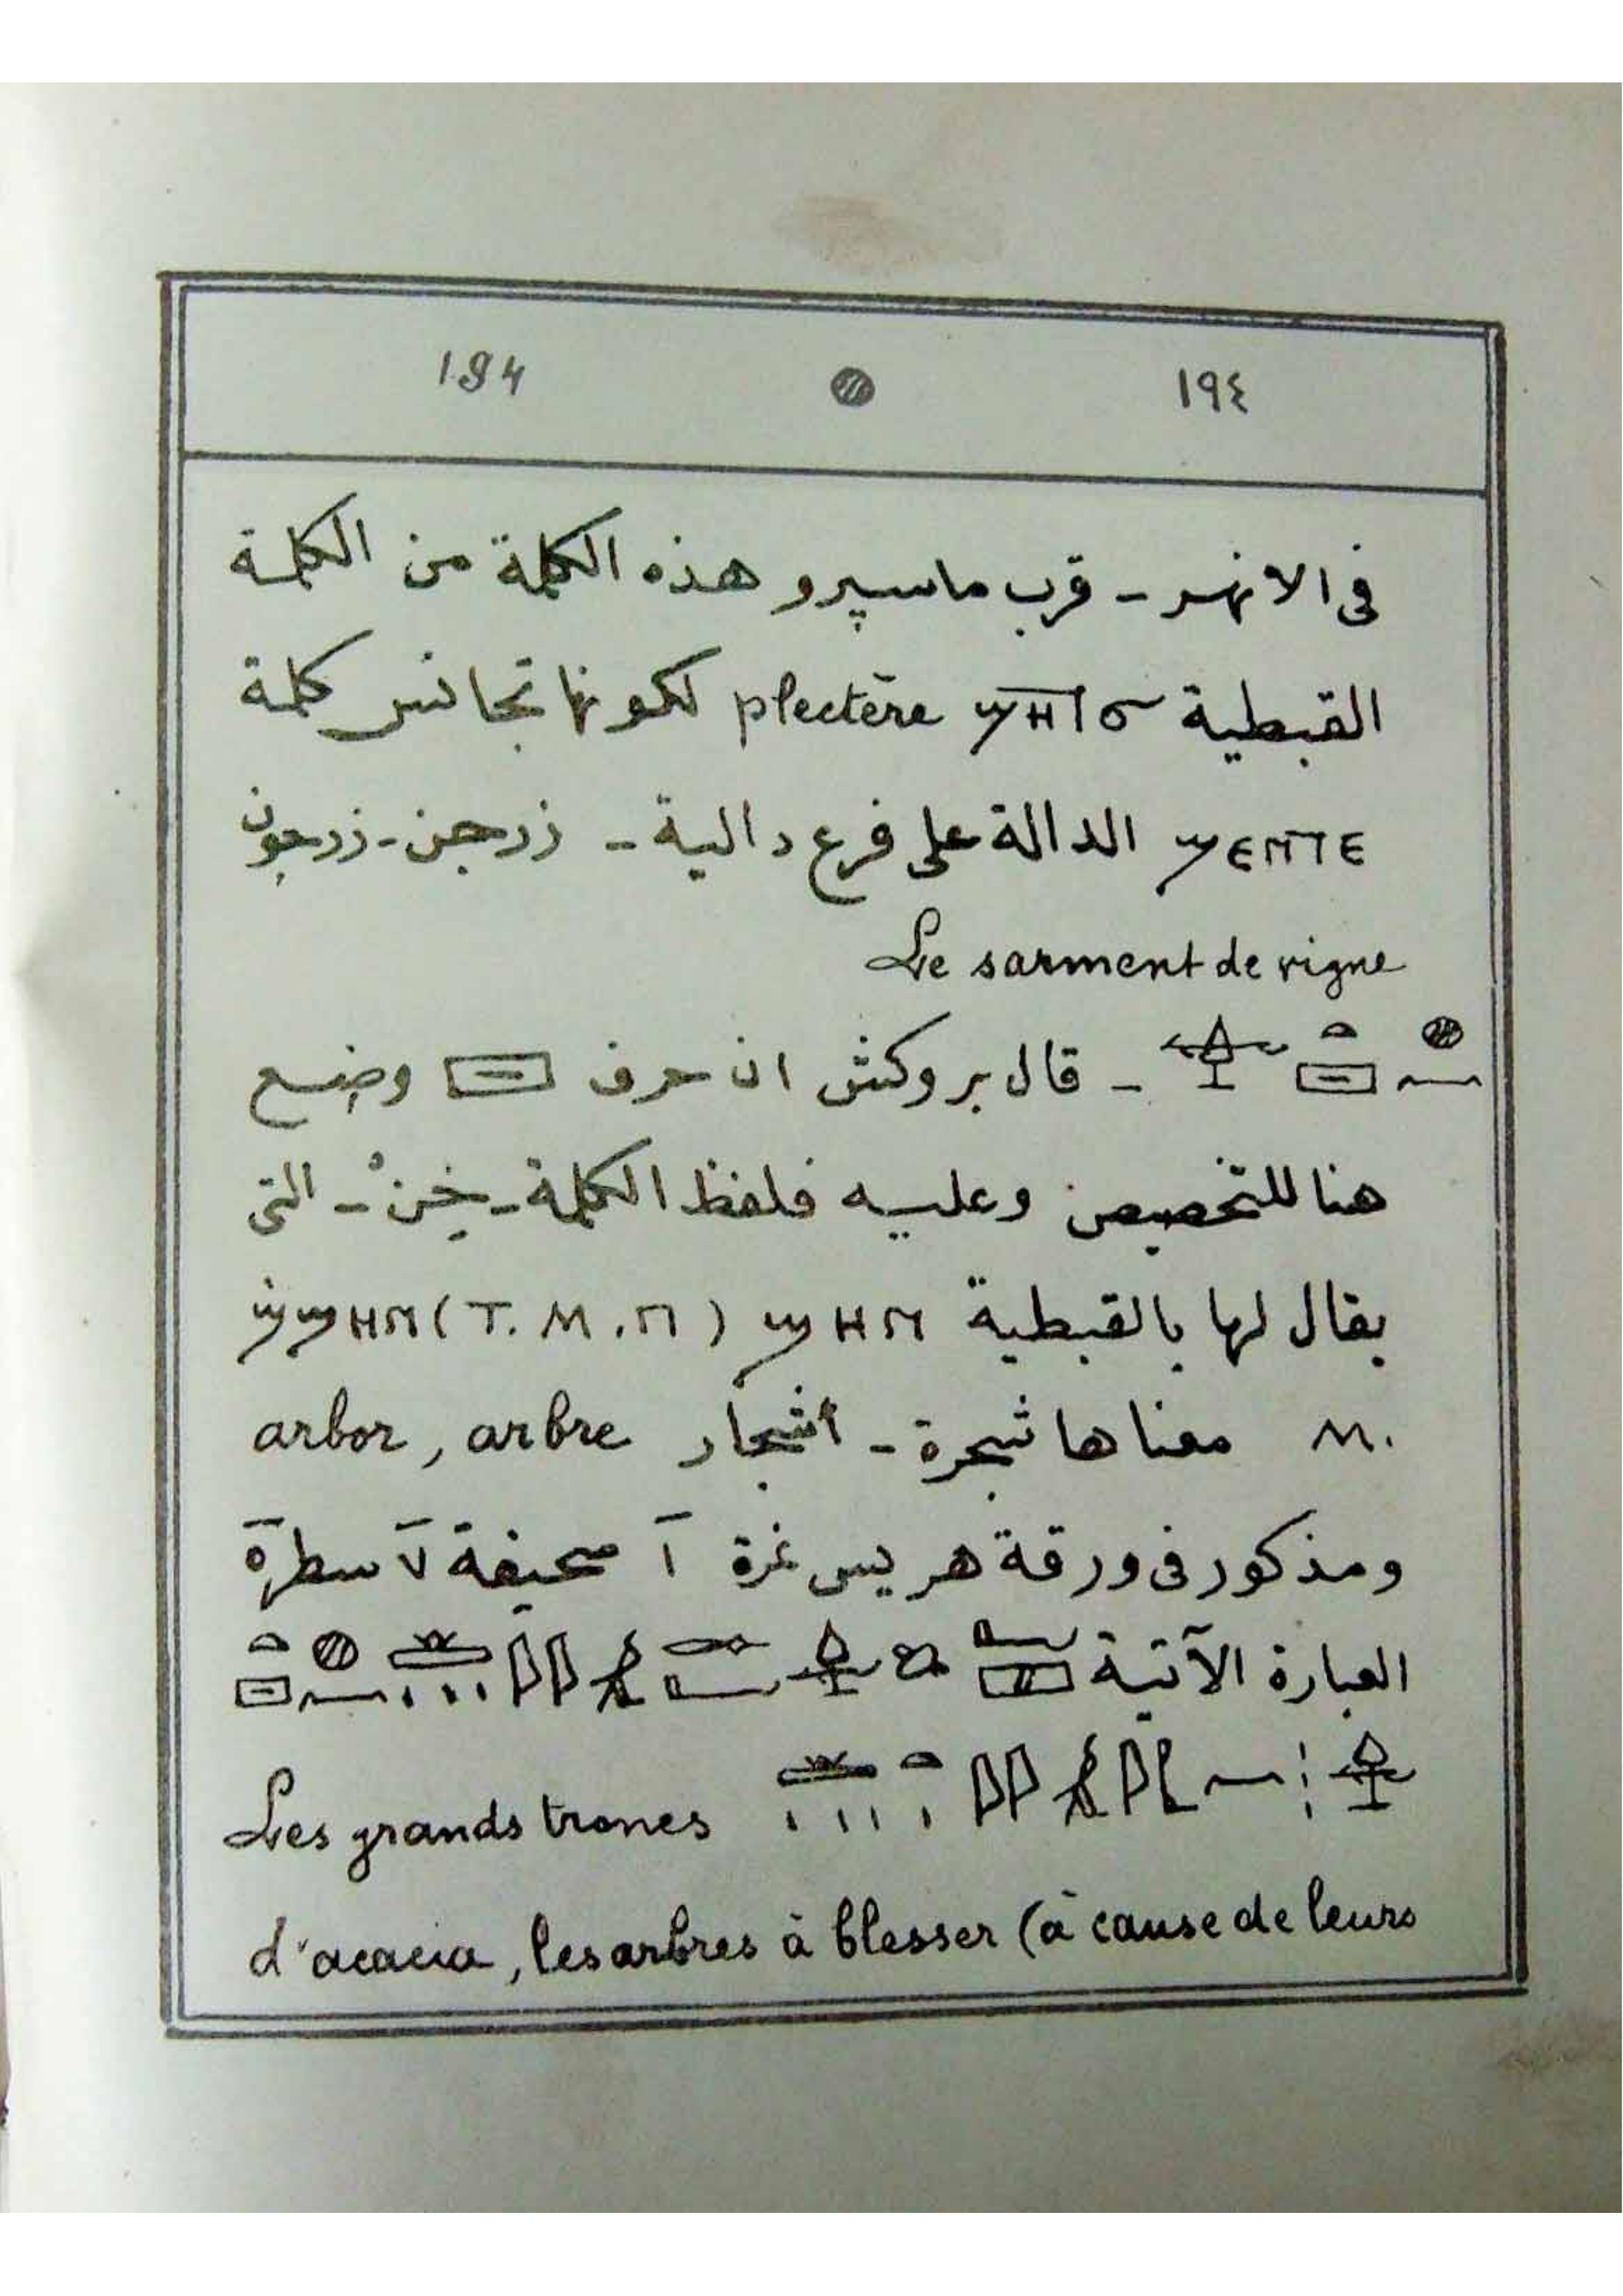 194 ١٩٤
فى الانهر - قرب ماسپرو هذه الكلمة من الكلمة
القبطية plectēre لكونها تجانس كلمة
ϣⲉⲛⲧⲉ الدالة على فرع دالية - زرجن - زرجون
Le sarment de vigne
- قال بروكش ان حرف وضع
هنا للتخصيص وعليه فلفظ الكلمة - خِنْ - التى
يقال لها بالقبطية ϣⲏⲛ (T. M. ⲡ) ϣϣⲏⲛ
M. معناها شجرة - اشجار arbor, arbre
ومذكور فى ورقة هريس نمرة ١ صحيفة ٧ سطر ٥
العبارة الآتية
Les grands troncs
d'acacia, les arbres à blesser (à cause de leurs